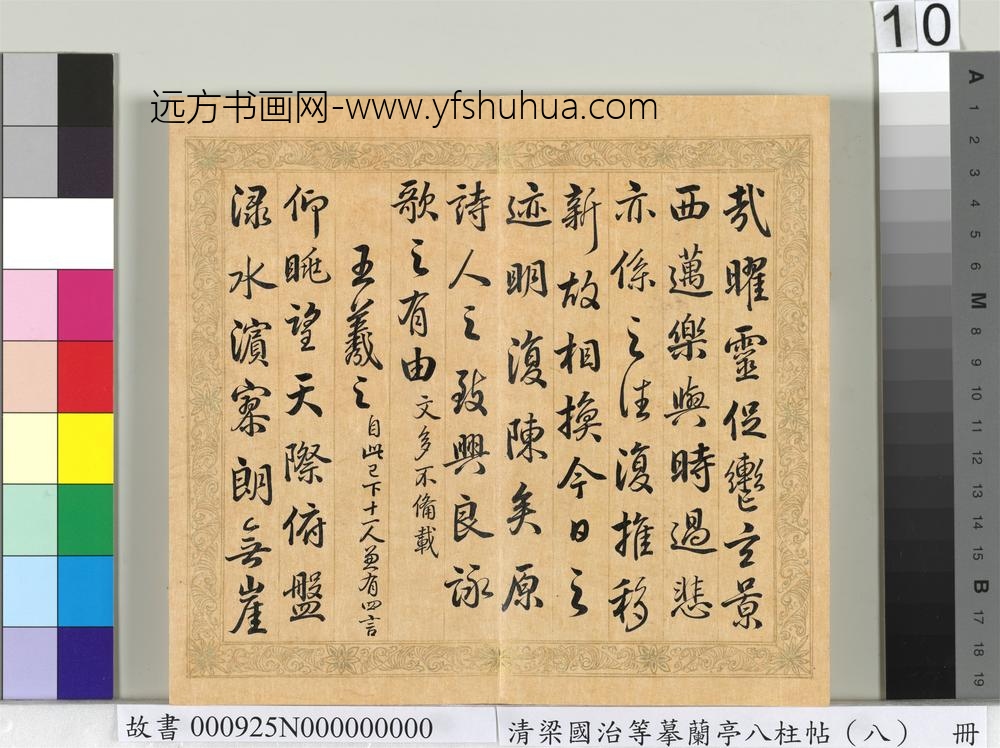 10
远方书画网-www.yfshuhua.com
哉曜靈促轡玄景
西邁樂與時過悲
亦係之往復推移
新故相換今日之
迹明復陳矣原
詩人之致興良詠
歌之有由文多不備載
王羲之自此已下十人兼有四言
仰眺望天際俯盤
渌水濱寥朗無崖
A 1 2 3 4 5 6 M 8 9 10 11 12 13 14 15 B 17 18 19
故書 000925N000000000
清梁國治等摹蘭亭八柱帖（八） 冊